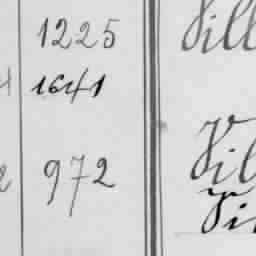 1225 Vill
1641
972 Vil
Vi